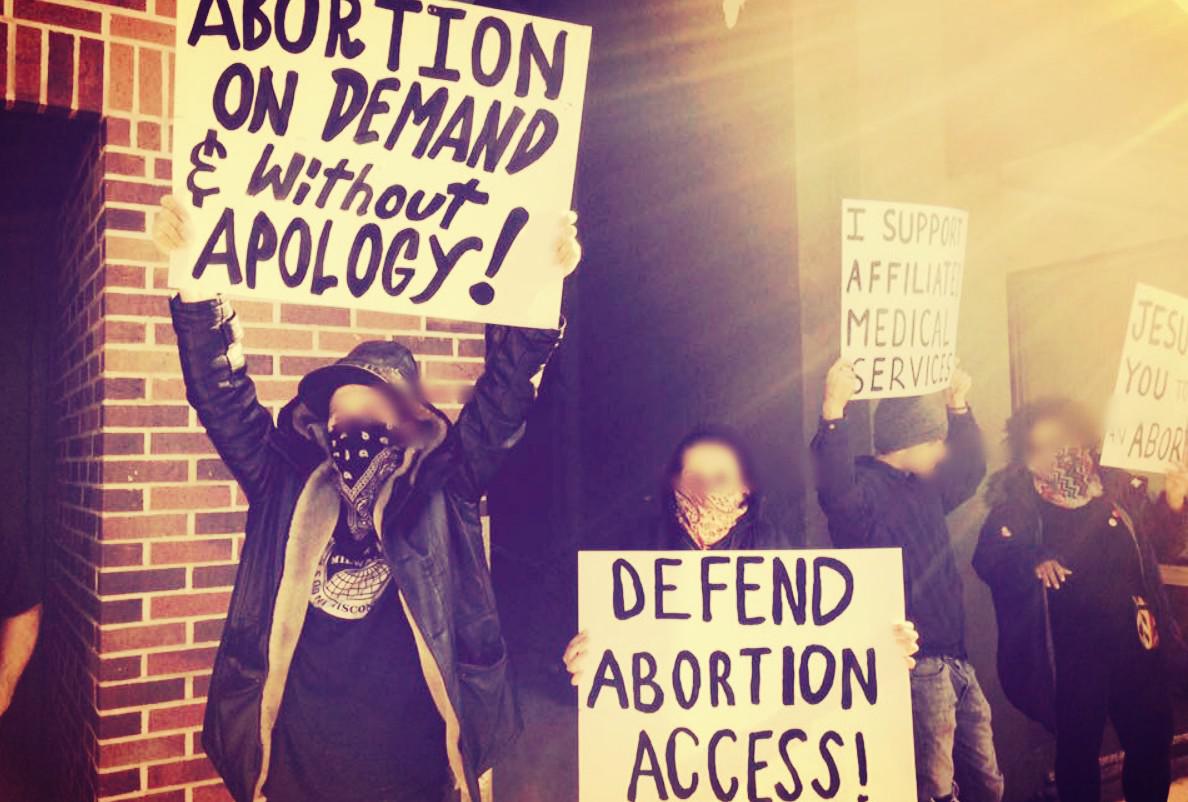 ABORTION
ON DEMAND
& Without
APOLOGY!
I SUPPORT
AFFILIATED
MEDICAL
SERVICES
YOU
DEFEND
ABORTION
ACCESS!